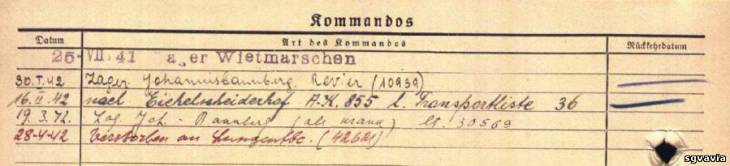 Kommandos
Datum Art des Kommandos Rückkehrdatum
25. VII. 41 ager Wietmarschen
30.I.42 Lager Johannisbannberg Revier (10939)
16.II.42 nach Eichelscheiderhof A.K. 855 l. Transportliste 36
19.3.42 Lag. Joh-Bannberg (als krank) 30569
28-4-42 Verstorben an Lungentbc. (42621)
sgvavia